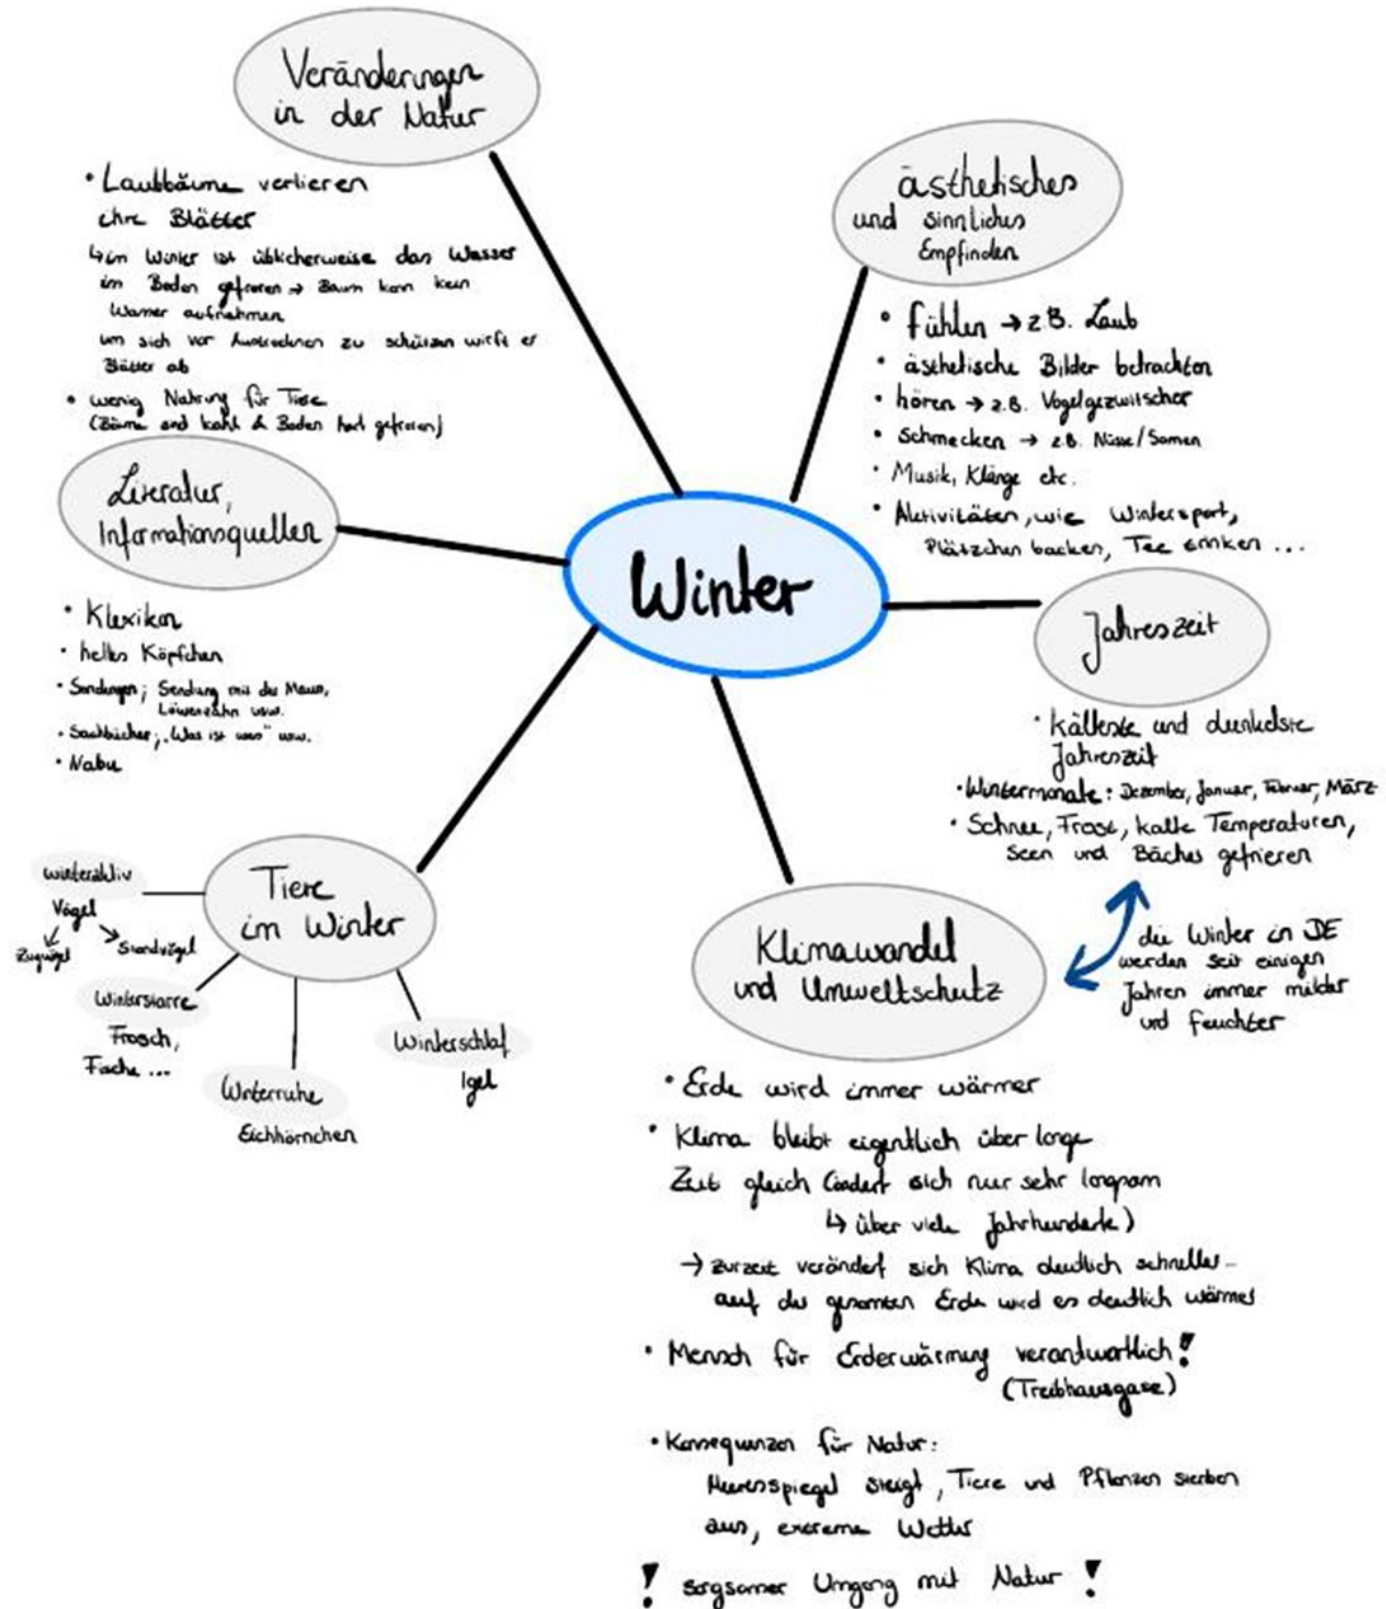 Veränderungen
in der Natur
• Laubbäume verlieren
ihre Blätter
↳ im Winter ist üblicherweise das Wasser
im Boden gefroren → Baum kann kein
Wasser aufnehmen
um sich vor Austrocknen zu schützen wirft er
Blätter ab
• wenig Nahrung für Tiere
(Bäume sind kahl & Boden hart gefroren)
ästhetisches
und sinnliches
Empfinden
• fühlen → z.B. Laub
• ästhetische Bilder betrachten
• hören → z.B. Vogelgezwitscher
• schmecken → z.B. Nüsse/Samen
• Musik, Klänge etc.
• Aktivitäten, wie Wintersport,
Plätzchen backen, Tee trinken ...
Literatur,
Informationsquellen
• Klexikon
• helles Köpfchen
• Sendungen; Sendung mit der Maus,
Löwenzahn usw.
• Sachbücher; „Was ist was" usw.
• Nabu
Winter
Jahreszeit
• kälteste und dunkelste
Jahreszeit
• Wintermonate: Dezember, Januar, Februar, März
• Schnee, Frost, kalte Temperaturen,
Seen und Bäche gefrieren
Tiere
im Winter
winteraktiv
Vögel
Zugvögel
Standvögel
Winterstarre
Frosch,
Fische ...
Winterruhe
Eichhörnchen
Winterschlaf
Igel
Klimawandel
und Umweltschutz
die Winter in DE
werden seit einigen
Jahren immer milder
und feuchter
• Erde wird immer wärmer
• Klima bleibt eigentlich über lange
Zeit gleich (ändert sich nur sehr langsam
↳ über viele Jahrhunderte)
→ zurzeit verändert sich Klima deutlich schneller -
auf der gesamten Erde wird es deutlich wärmer
• Mensch für Erderwärmung verantwortlich!
(Treibhausgase)
• Konsequenzen für Natur:
Meeresspiegel steigt, Tiere und Pflanzen sterben
aus, extreme Wetter
! sorgsamer Umgang mit Natur !